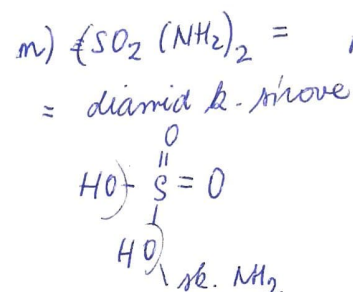 m) SO2 (NH2)2 =
= diamid k. sírové
O
||
HO - S = O
|
HO
sk. NH2